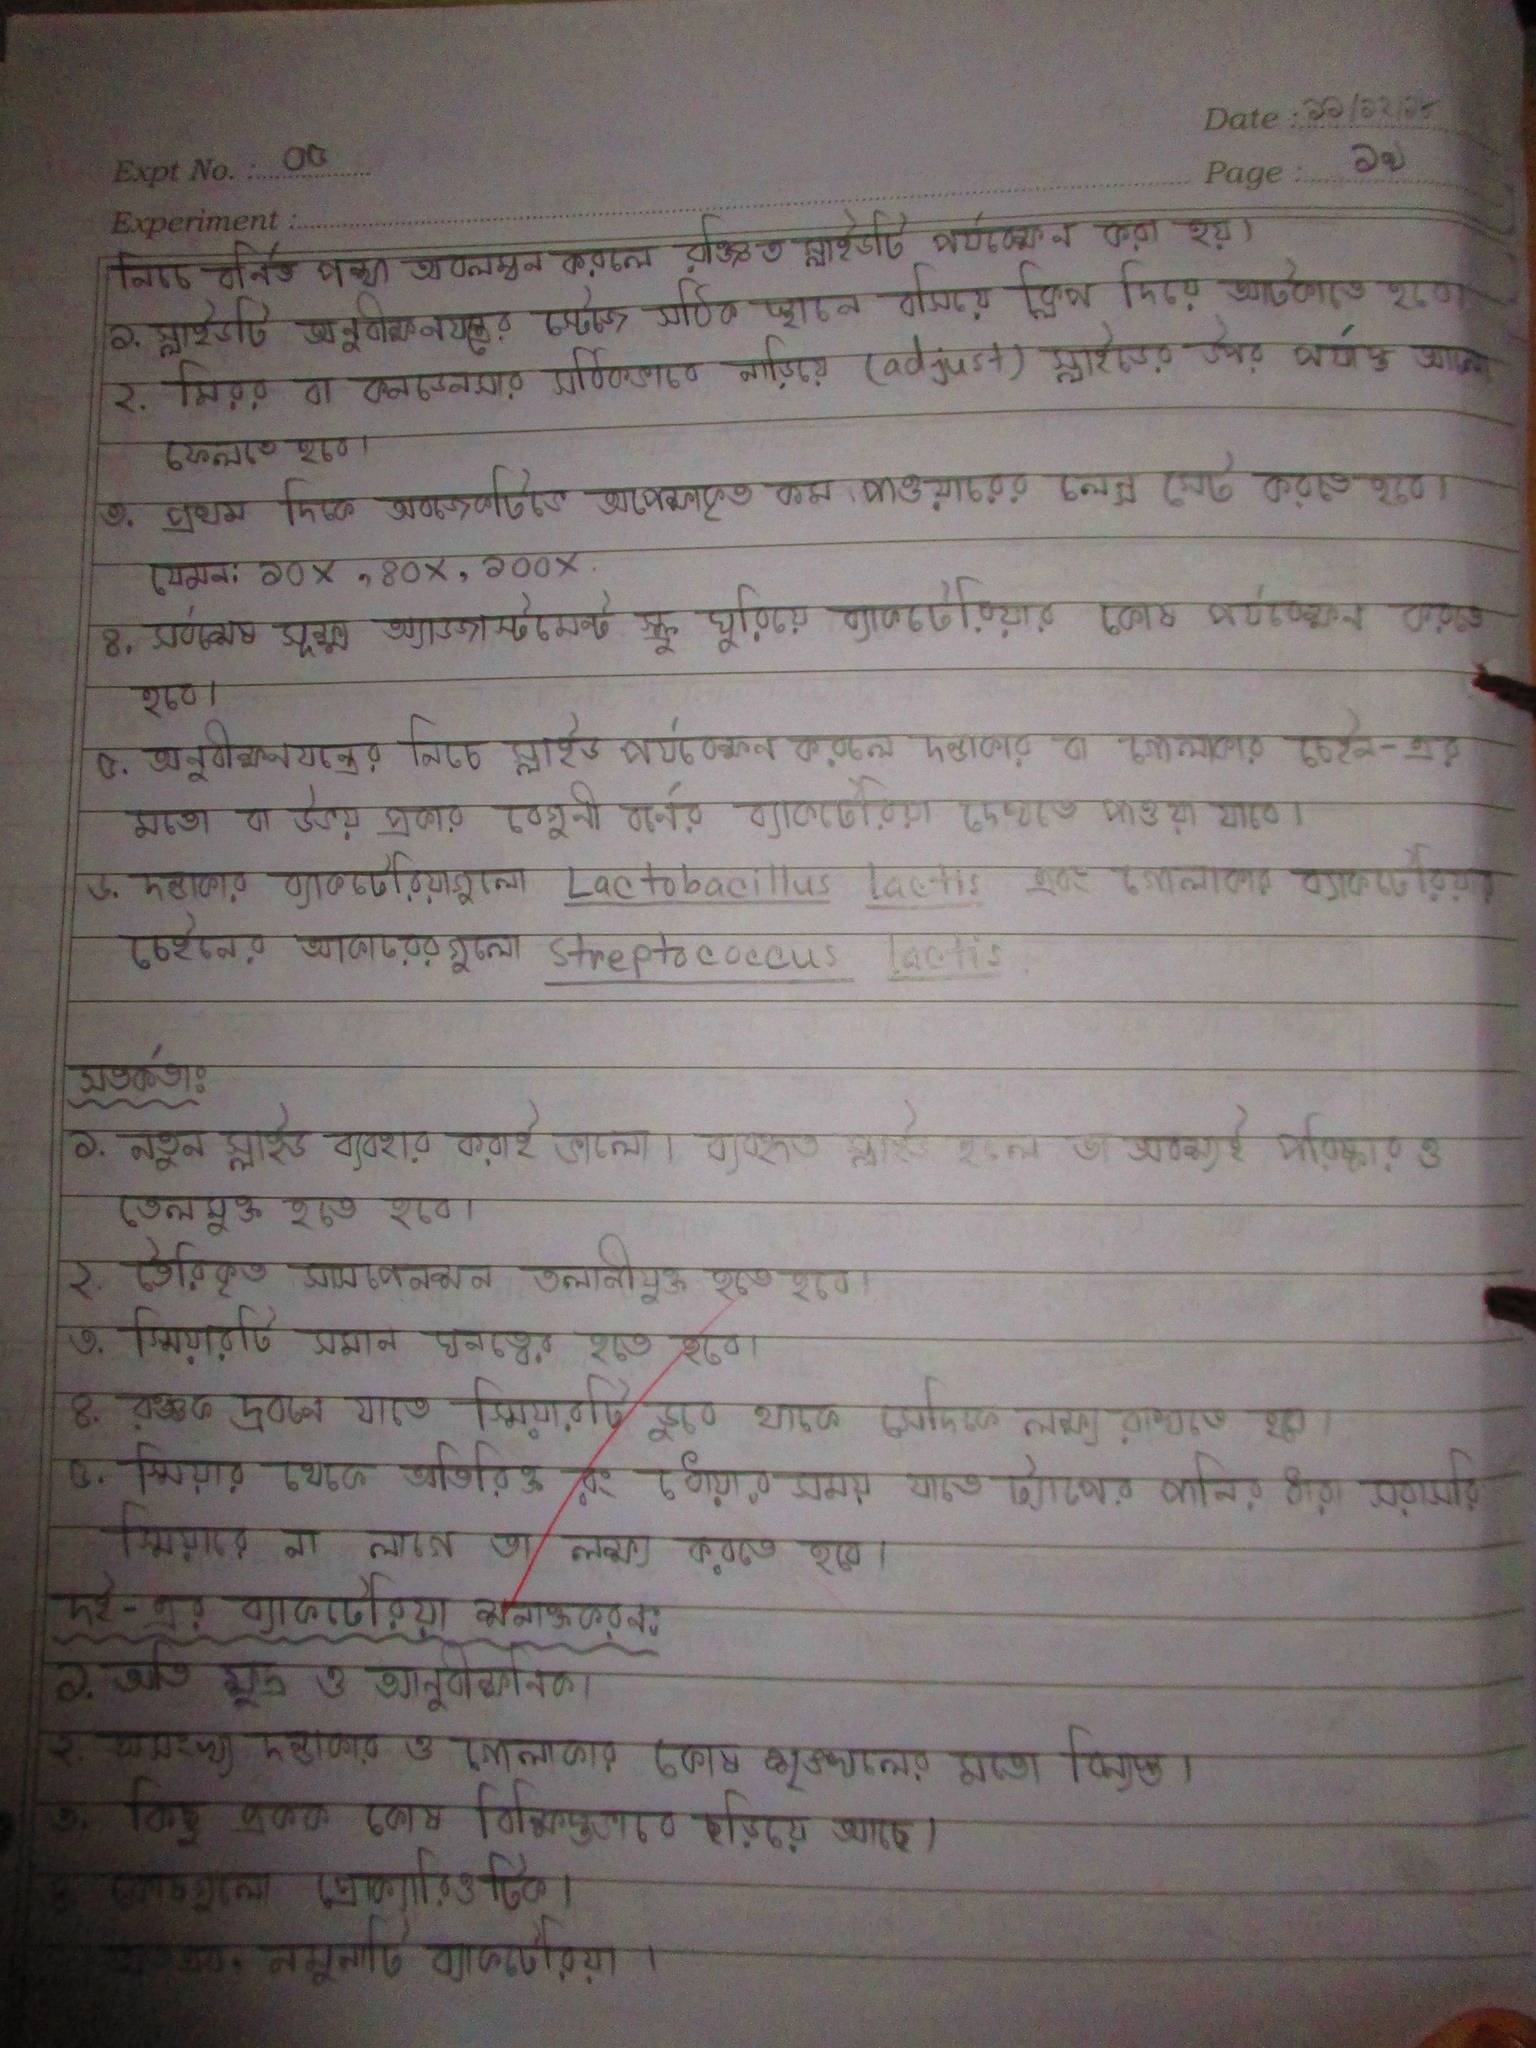 Date : ১১/১২/১৮
Expt No. : ০৫
Page : ১৩
Experiment :
নিচে বর্নিত পন্থা অবলম্বন করলে রঞ্জিত স্লাইডটি পর্যবেক্ষন করা হয়।
১. স্লাইডটি অনুবীক্ষনযন্ত্রের স্টেজে সঠিক স্থানে বসিয়ে ক্লিপ দিয়ে আটকাতে হবে।
২. মিরর বা কনডেনসার সঠিকভাবে নাড়িয়ে (adjust) স্লাইডের উপর পর্যাপ্ত আলো
ফেলতে হবে।
৩. প্রথম দিকে অবজেকটিভে অপেক্ষাকৃত কম পাওয়ারের লেন্স সেট করতে হবে।
যেমন: ১০X, ৪০X, ১০০X.
৪. সর্বশেষ সূক্ষ্ম অ্যাডজাস্টমেন্ট স্ক্রু ঘুরিয়ে ব্যাকটেরিয়ার কোষ পর্যবেক্ষন করতে
হবে।
৫. অনুবীক্ষনযন্ত্রের নিচে স্লাইড পর্যবেক্ষন করলে দন্ডাকার বা গোলাকার চেইন-এর
মতো বা উভয় প্রকার বেগুনী বর্নের ব্যাকটেরিয়া দেখতে পাওয়া যাবে।
৬. দন্ডাকার ব্যাকটেরিয়াগুলো Lactobacillus lactis এবং গোলাকার ব্যাকটেরিয়ার
চেইনের আকারেরগুলো Streptococcus lactis.
সতর্কতা:
১. নতুন স্লাইড ব্যবহার করাই ভালো। ব্যবহৃত স্লাইড হলে তা অবশ্যই পরিষ্কার ও
তেলমুক্ত হতে হবে।
২. তৈরিকৃত সাসপেনশন তলানীমুক্ত হতে হবে।
৩. স্মিয়ারটি সমান ঘনত্বের হতে হবে।
৪. রঞ্জক দ্রবনে যাতে স্মিয়ারটি ডুবে থাকে সেদিকে লক্ষ্য রাখতে হবে।
৫. স্মিয়ার থেকে অতিরিক্ত রং ধোয়ার সময় যাতে ট্যাপের পানির ধারা সরাসরি
স্মিয়ারে না লাগে তা লক্ষ্য করতে হবে।
দই-এর ব্যাকটেরিয়া শনাক্তকরন:
১. অতি ক্ষুদ্র ও আনুবীক্ষনিক।
২. অসংখ্য দন্ডাকার ও গোলাকার কোষ শৃঙ্খলের মতো বিন্যস্ত।
৩. কিছু একক কোষ বিক্ষিপ্তভাবে ছড়িয়ে আছে।
কোষগুলো প্রোক্যারিওটিক।
নমুনাটি ব্যাকটেরিয়া।